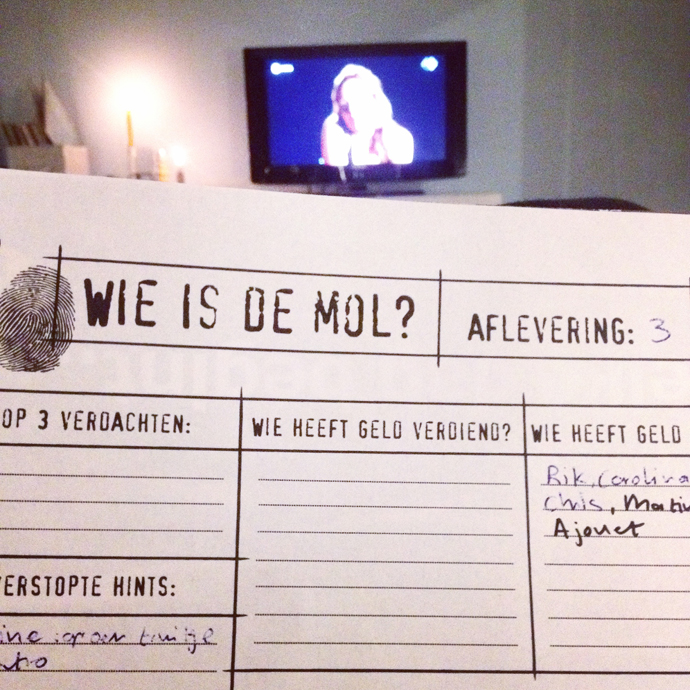 WIE IS DE MOL?
AFLEVERING: 3
OP 3 VERDACHTEN:
WIE HEEFT GELD VERDIEND?
WIE HEEFT GELD
Rik, Carolina
Chris, Martin
Ajouet
VERSTOPTE HINTS: